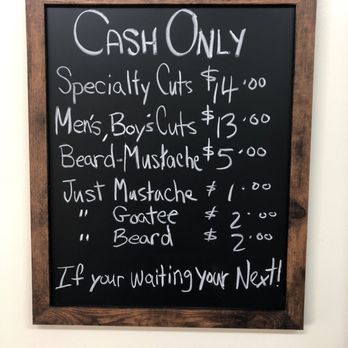 CASH ONLY
Specialty Cuts $14.00
Men's, Boy's Cuts $13.00
Beard-Mustache $5.00
Just Mustache $1.00
" Goatee $2.00
" Beard $2.00
If your waiting your Next!